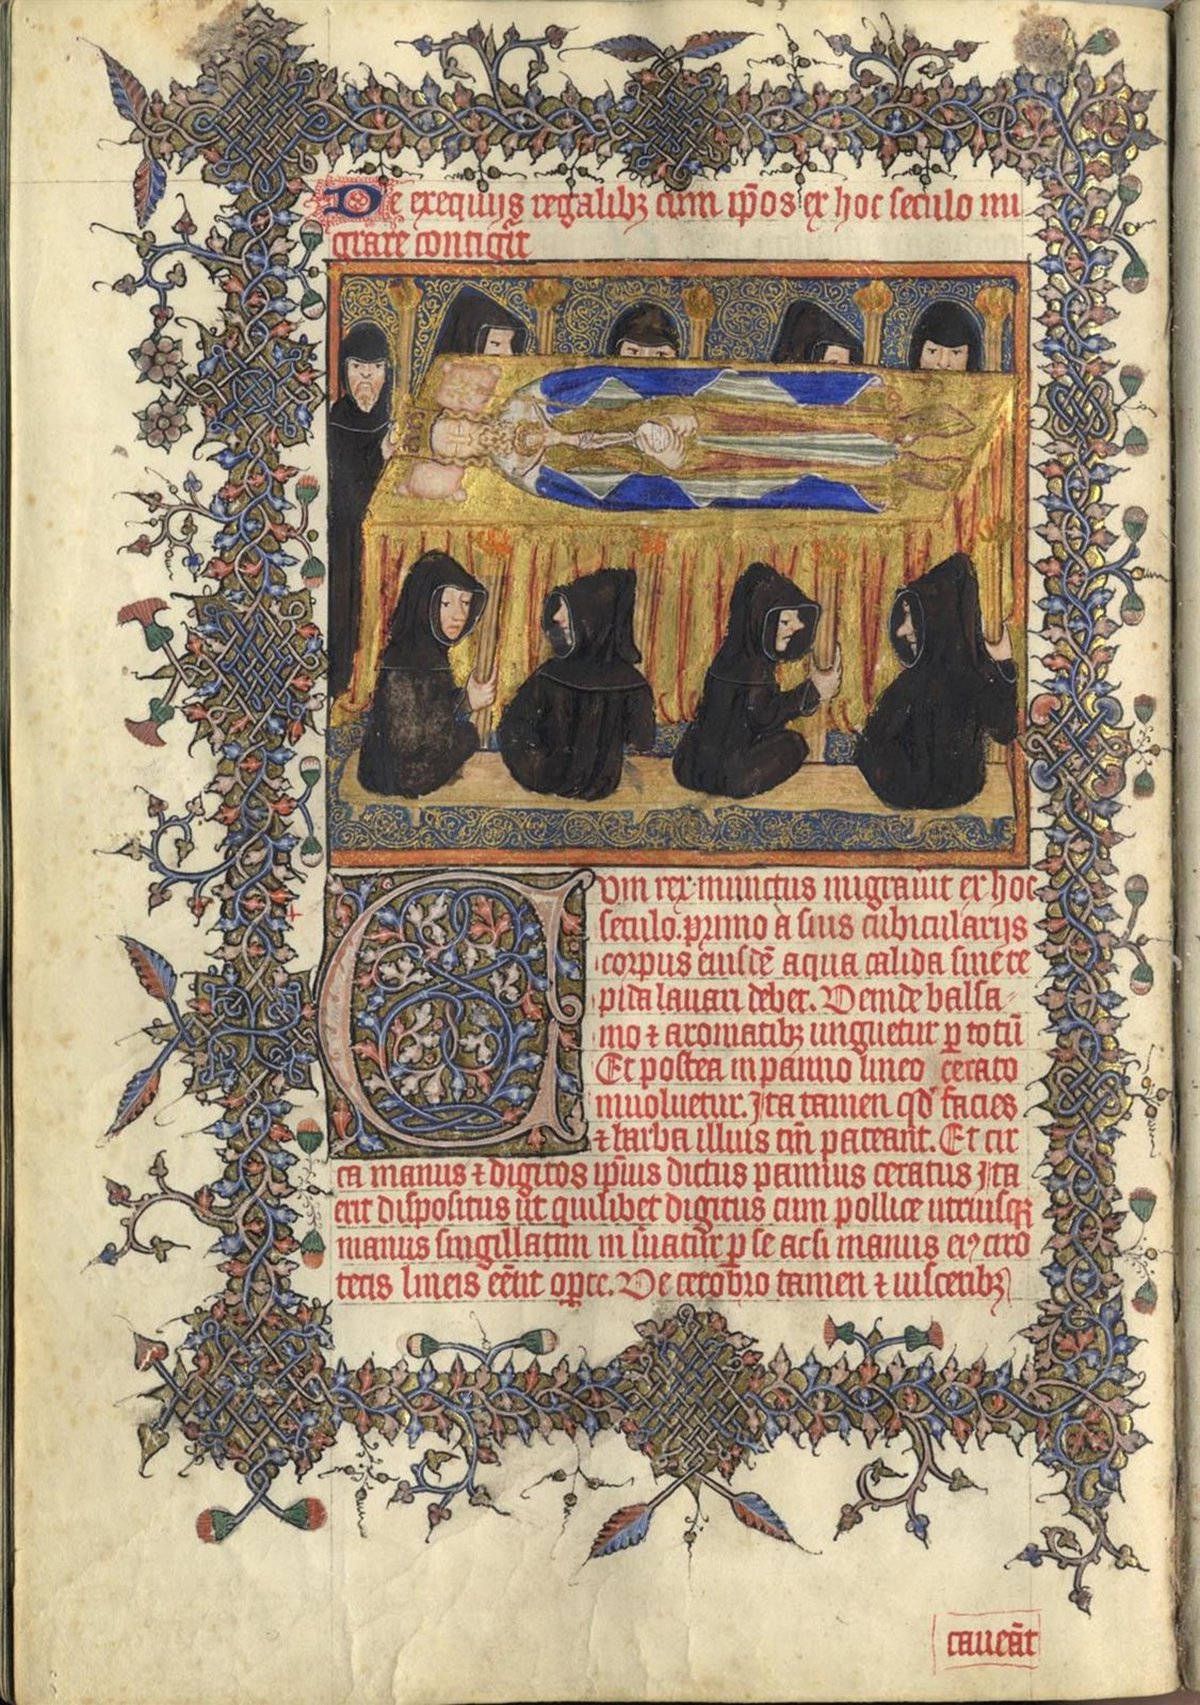 De exequijs regalibꝫ cum ip̄os ex hoc seculo mi
grare contig̃it
Cum rex inunctus migrauit ex hoc
seculo. Primo a suis cubicularijs
corpus eiusdē aqua calida siue te
pida lauari debet. Deinde balsa-
mo ⁊ aromatibꝫ unguetur ꝑ totū
Et postea in panno lineo cerato
inuoluetur. Ita tamen qd̓ facies
⁊ barba illius tm̄ pateant. Et cir
ca manus ⁊ digitos ip̄ius dictus pannus ceratus Ita
erit dispositus ut quilibet digitus cum pollice utriusqꝫ
manus singillatim insuatur ꝑ se acsi manus eiꝰ ciro
tecis lineis eēnt opte. De cerebro tamen ⁊ uisceribꝫ
caueāt